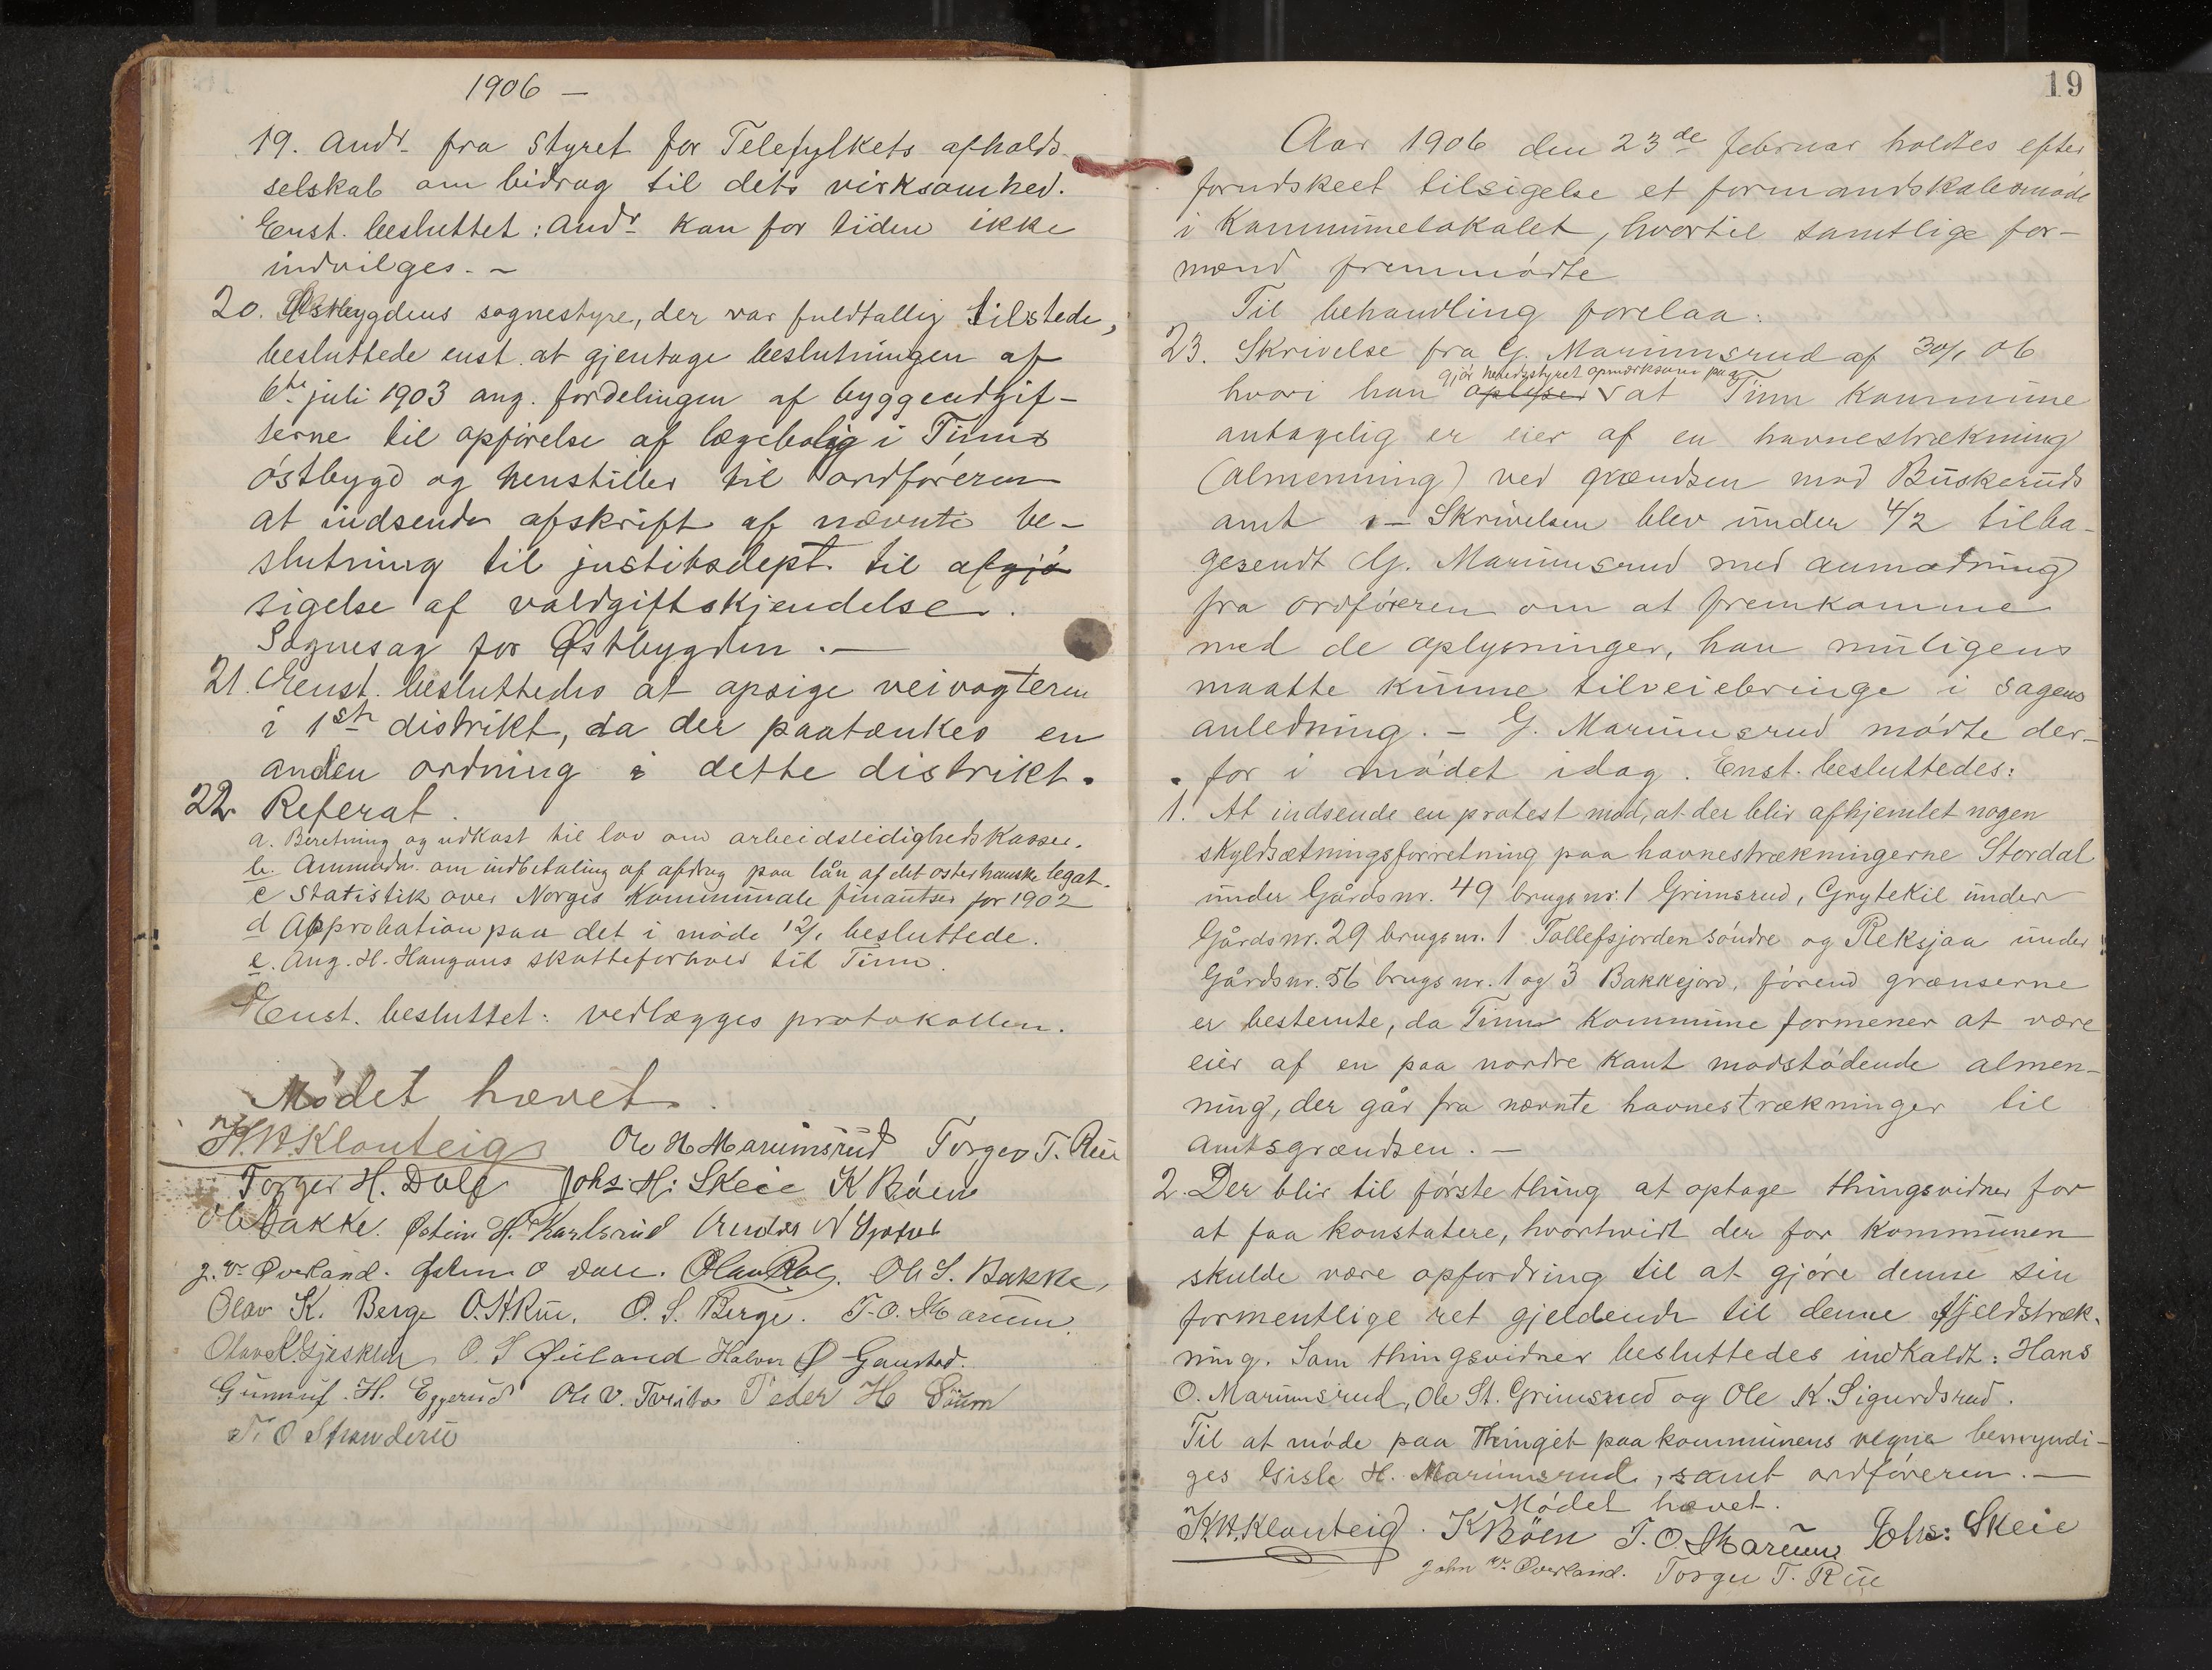 1906 —
19. Andr. fra styret for Telefylkets afholds-
selskab om bidrag til dets virksomhed.
Enst. besluttet: Andr. kan for tiden ikke
indvilges. -
20. Østbygdens sognestyre, der var fuldtallig tilstede,
besluttede enst. at gjentage beslutningen af
6te juli 1903 ang. fordelingen af byggeudgif-
terne til opførelse af lægebolig i Tinns
østbygd og henstiller til ordføreren
at indsende afskrift af nævnte be-
slutning til justitsdept. til afgjø
sigelse af voldgiftskjendelse.
Sognesag for Østbygden. —
21. Eenst. besluttedes at opsige veivogteren
i 1ste distrikt, da der paatænkes en
anden ordning i dette distrikt.
22. Referat.
a. Beretning og udkast til lov om arbeidsledighedskasser.
b. Anmodn. om indbetaling af afdrag paa lån af det osterhauske legat.
c Statistik over Norges kommunale finantser for 1902
d Approbation paa det i møde 12/1 besluttede.
e. Ang. H. Haugans skatteforhold til Tinn.
Eenst. besluttet: vedlægges protokollen.
Mødet hævet.
K.A.Klonteig Ole H Marumsrud Torger T. Rue
Torger H. Dale Johs: H: Skeie K Bøen
O Bakke. Østein H. Karlsrud
J. V. Øverland. Østen O Dale. Olav Ole S. Bakke,
Olav K. Berge O.K.Rue. O. S. Berge. T. O. Marum.
Olav K. O. S Øiland Halvor Ø Gaustad.
Gunnuf. H. Eggerud Ole V. Tveito Peder H Søum
T. O Stranderu
19
Aar 1906 den 23de februar holdtes efter
forudskeet tilsigelse et formandskabsmøde
i Kommunelokalet, hvortil samtlige for-
mænd fremmødte
Til behandling forelaa:
23. Skrivelse fra G. Marumsrud af 30/1 06
gjør herredsstyret opmærksom paa
hvori han oplyser at Tinn kommune
antagelig er eier af en havnestrækning
(almenning) ved grændsen mod Buskeruds
amt - Skrivelsen blev under 4/2 tilba-
gesendt G. Marumsrud med anmodning
fra ordføreren om at fremkomme
med de oplysninger, han muligens
maatte kunne tilveiebringe i sagens
anledning. - G. Marumsrud mødte der-
for i mødet idag. Enst. besluttedes:
1. At indsende en protest mod, at der blir afhjemlet nogen
skyldsætningsforretning paa havnestrækningerne Stordal
under Gårdsnr. 49 brugsnr. 1 Grimsrud, Grytekil under
Gårdsnr. 29 brugsnr. 1 Tollefsjorden søndre og Reksjaa under
Gårdsnr. 56 brugsnr. 1 og 3 Bakkejord, førend grænserne
er bestemte, da Tinn kommune formener at være
eier af en paa nordre kant modstødende almen-
ning, der går fra nævnte havnestrækninger til
amtsgrændsen. —
2. Der blir til første thing at optage thingsvidner for
at faa konstatere, hvortvidt der for kommunen
skulde være opfordring til at gjøre denne sin
formentlige ret gjeldende til denne fjeldstræk-
ning. Som thingsvidner besluttedes indkaldt: Hans
O. Marumsrud, Ole St. Grimsrud og Ole K. Sigurdsrud.
Til at møde paa Thinget paa kommunens vegne bemyndi-
ges Gisle H. Marumsrud, samt ordføreren. —
Mødet hævet.
K.A.Klonteig. K Bøen T. O. Marum Johs: Skeie
John V. Øverland. Torger T. Rue